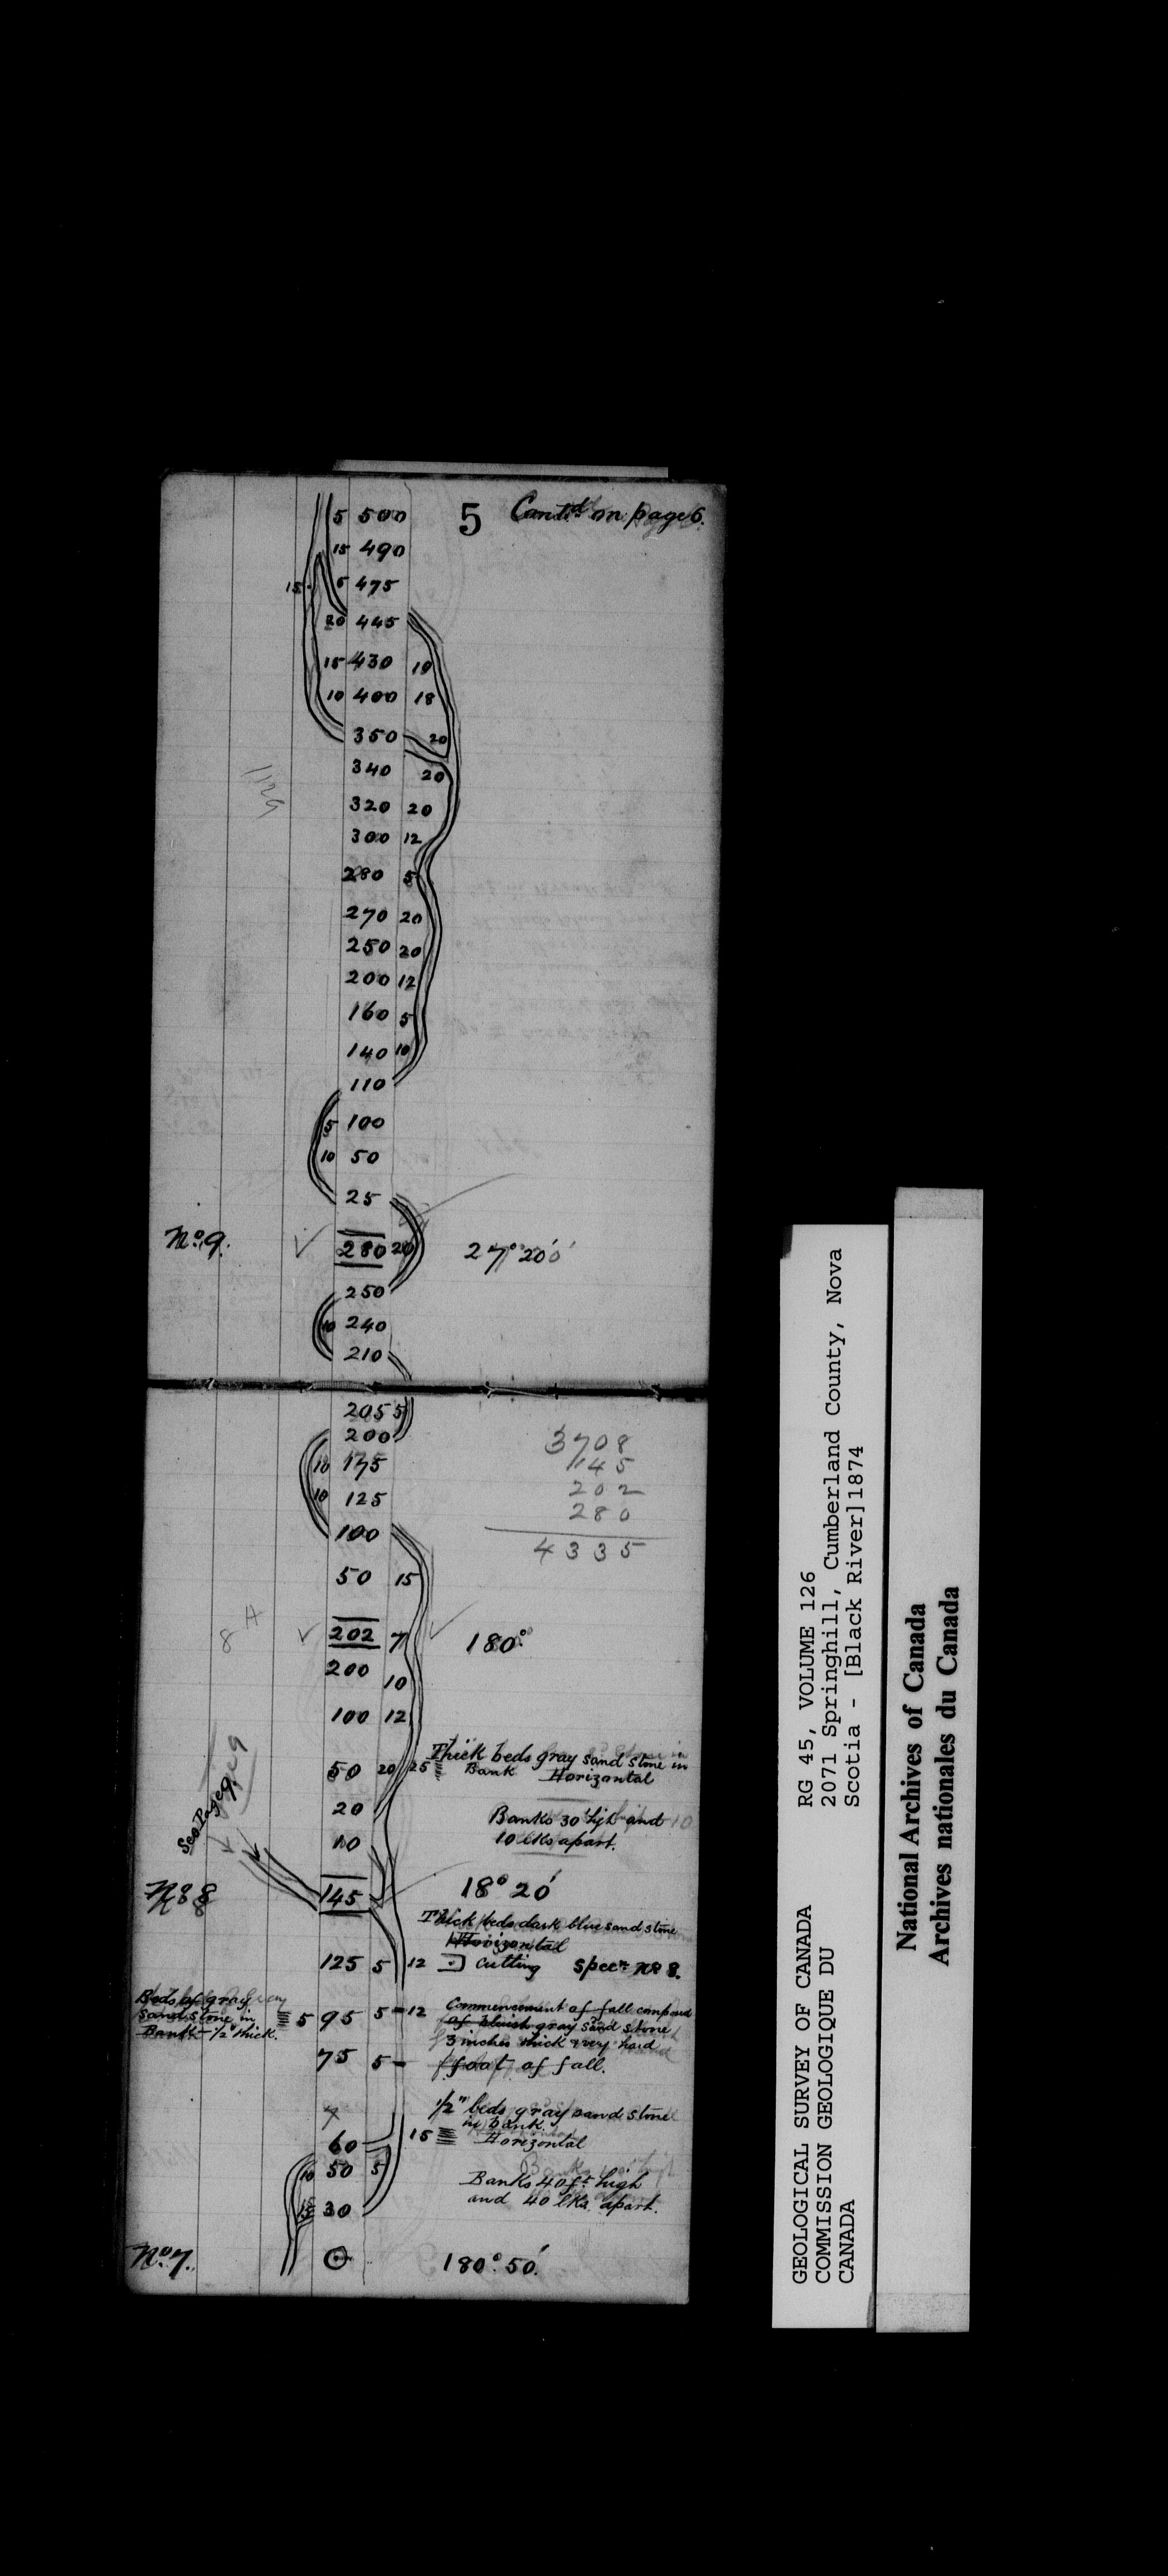 5 500 5 Contd on page 6.
15 490
15 5 475
20 445
15 430 19
10 400 18
350 20
340 20
320 20
300 12
280 5
270 20
250 20
200 12
160 5
140 10
110
5 100
10 50
25
No. 9. 280 20 27° 20'
250
10 240
210
205 5
200
10 175
10 125
100
50 15
3708
145
202
280
4335
8 A 202 7 180°
200 10
100 12
50 20 25 Thick beds gray sand stone in
Bank Horizontal
20 Banks 30 high and
10 10 lks apart.
See Page 9
No 8 145 18° 20'
Thick beds dark blue sand stone
Horizontal
125 5 12 Cutting Specn No 8.
Beds of gray
Sand stone in
Bank - 1/2 thick.
5 95 5 - 12 Commencement of fall composed
of bluish gray sand stone
3 inches thick & very hard
75 5 - foot of fall.
1/2" beds gray sand stone
in bank.
60 15 Horizontal
10 50 5 Banks 40 ft high
15 30 and 40 lks. apart.
No. 7. 180° 50'.
GEOLOGICAL SURVEY OF CANADA
COMMISSION GEOLOGIQUE DU
CANADA
RG 45, VOLUME 126
2071 Springhill, Cumberland County, Nova
Scotia - [Black River]1874
National Archives of Canada
Archives nationales du Canada